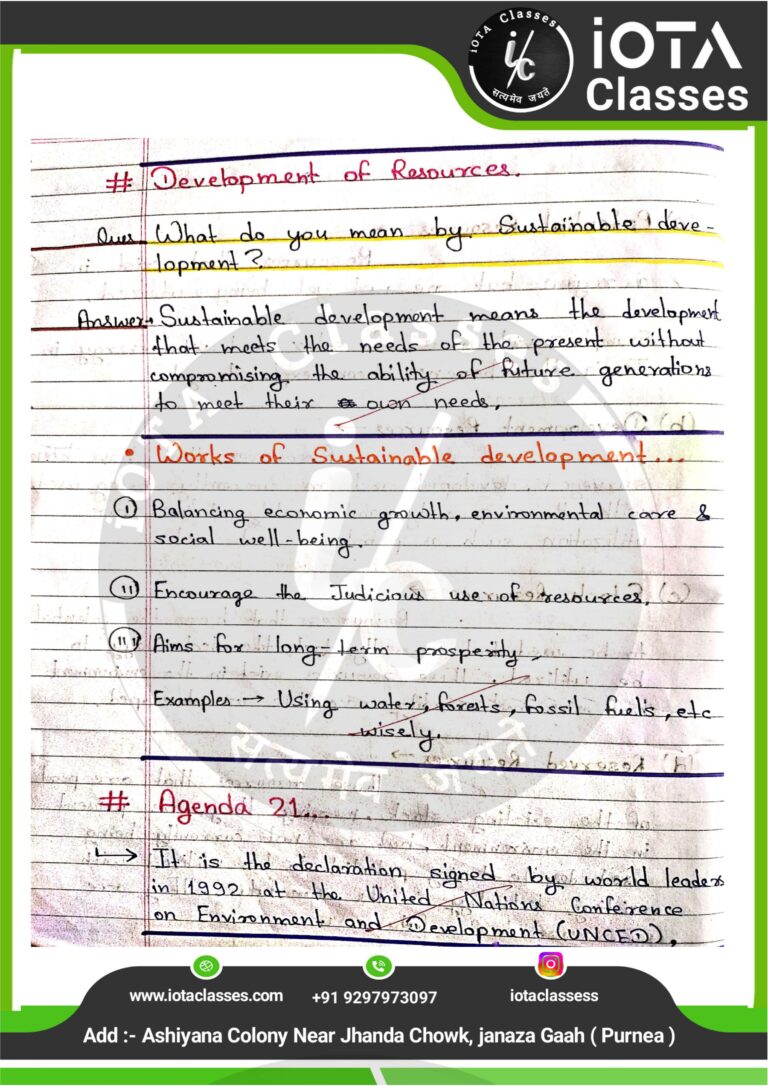 iOTA Classes
i/c
सत्यमेव जयते
iOTA
Classes
# Development of Resources.
Ques. What do you mean by Sustainable deve-
lopment?
Answer. Sustainable development means the development
that meets the needs of the present without
compromising the ability of future generations
to meet their own needs.
• Works of Sustainable development...
(i) Balancing economic growth, environmental care &
social well-being.
(ii) Encourage the Judicious use of resources.
(iii) Aims for long-term prosperity.
Examples → Using water, forests, fossil fuels, etc
wisely.
# Agenda 21...
→ It is the declaration signed by world leaders
in 1992 at the United Nations Conference
on Environment and Development (UNCED).
iOTA Classes
i/c
सत्यमेव जयते
www.iotaclasses.com
+91 9297973097
iotaclassess
Add :- Ashiyana Colony Near Jhanda Chowk, janaza Gaah ( Purnea )